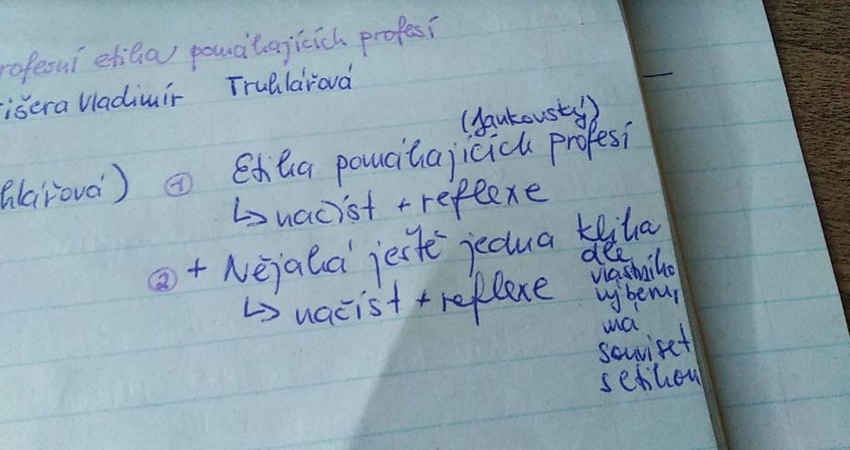 rofesní etika pomáhajících profesí
išera Vladimír Truhlářová
(Jankovský)
hlářová) ① Etika pomáhajících profesí
↳ načíst + reflexe
② + Nějaká ještě jedna kniha
dle
vlastního
výběru,
má
souviset
s etikou
↳ načíst + reflexe